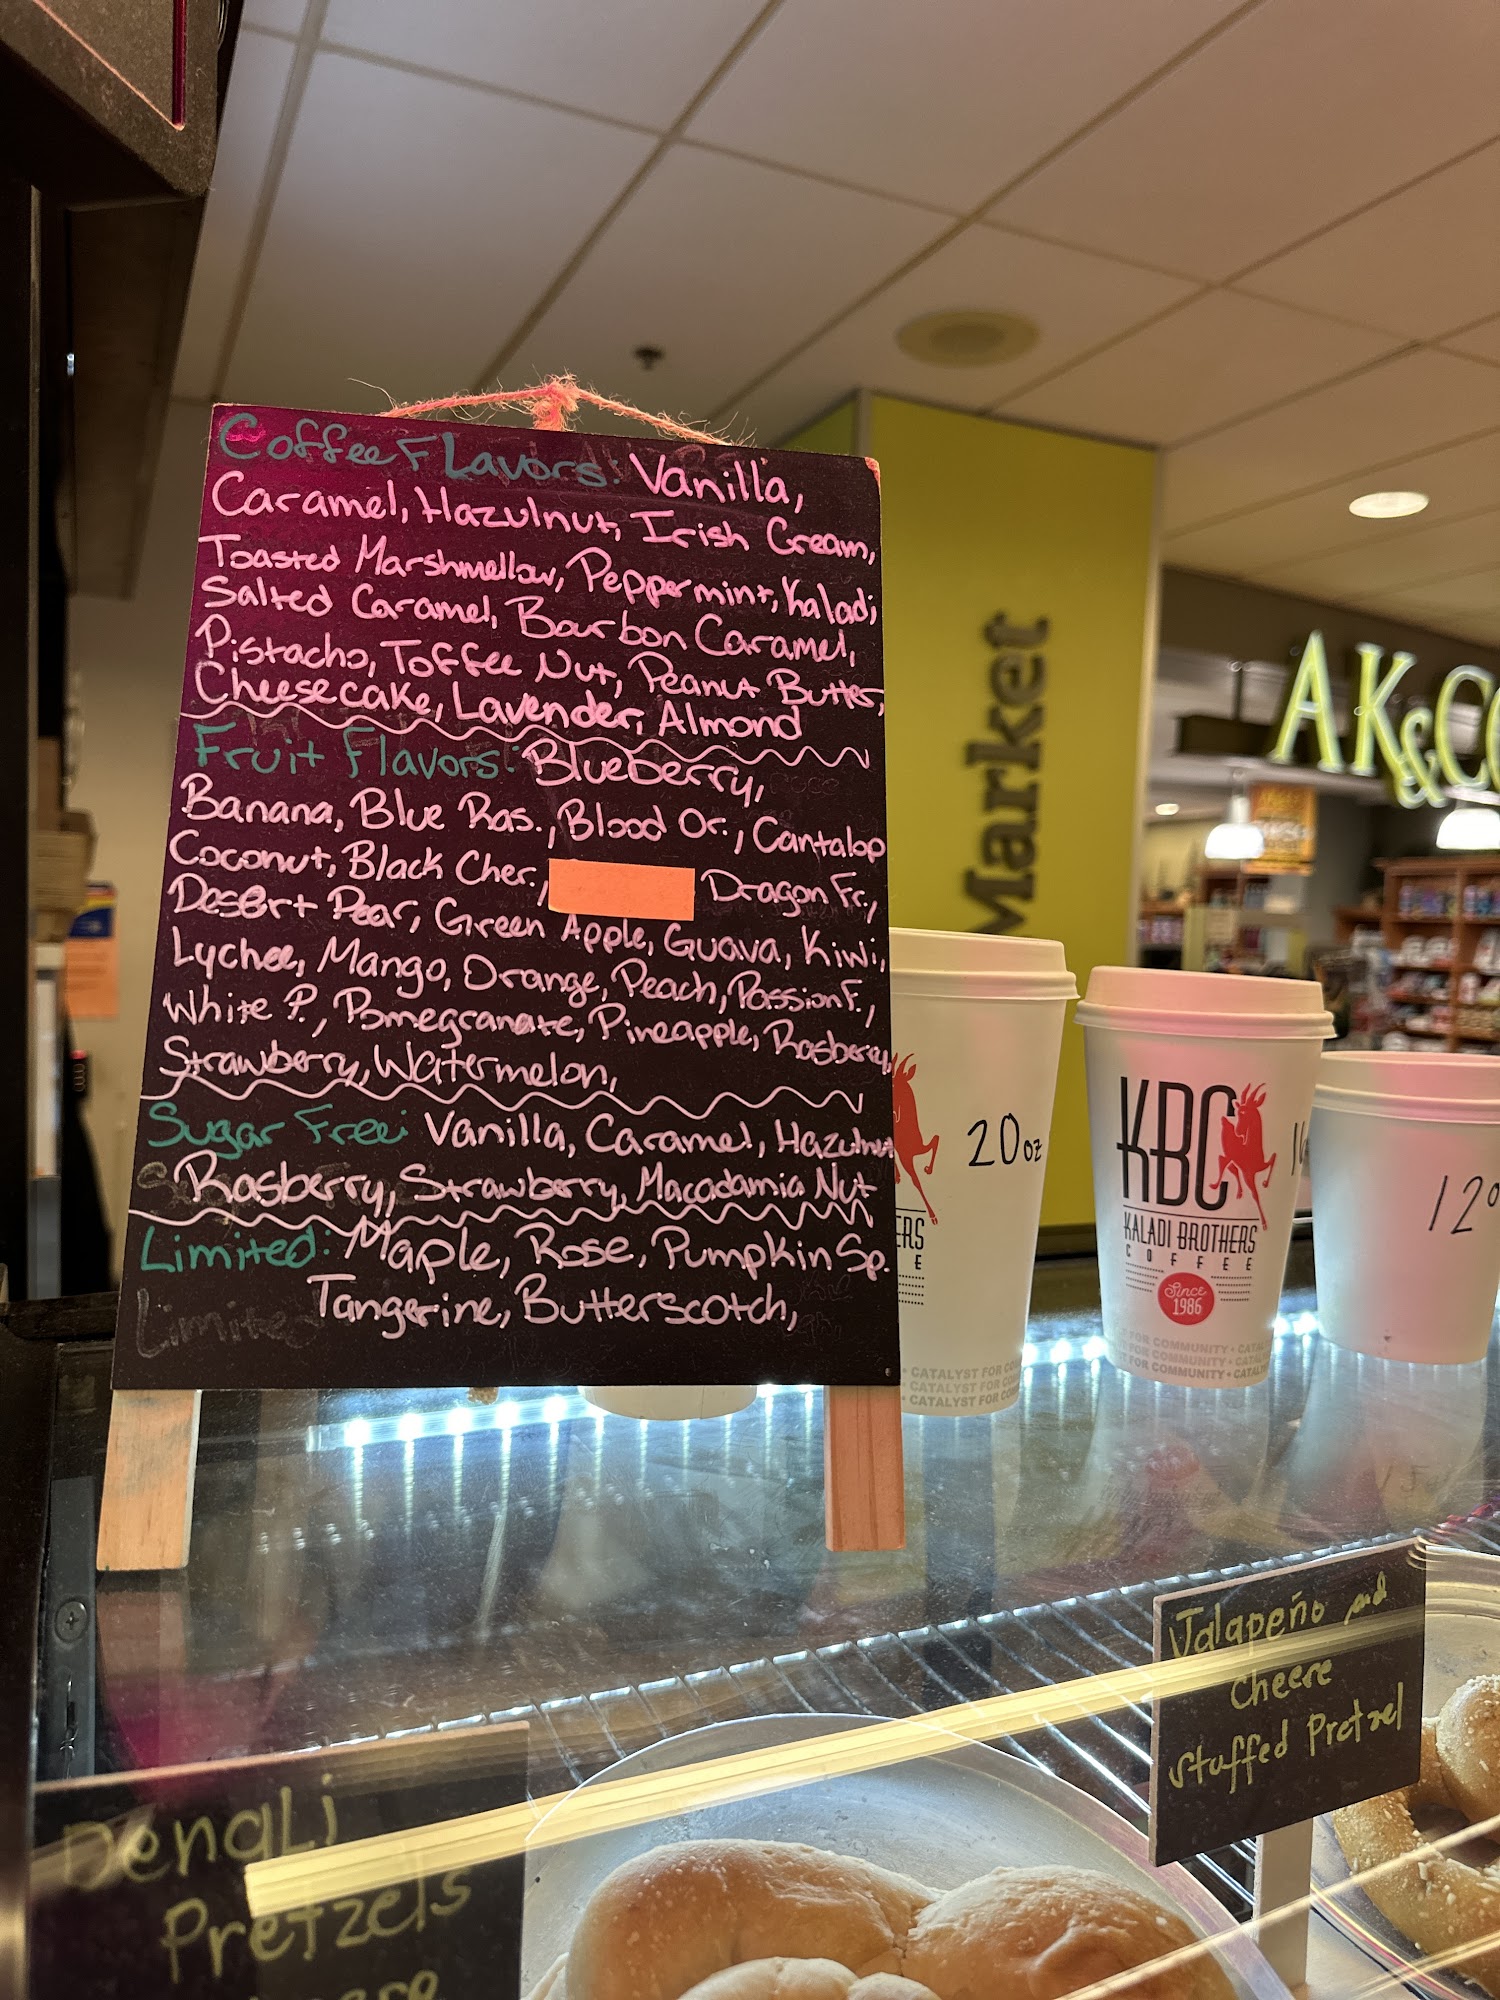 Coffee Flavors: Vanilla,
Caramel, Hazulnut, Irish Cream,
Toasted Marshmellow, Peppermint, Kaladi,
Salted Caramel, Bourbon Caramel,
Pistacho, Toffee Nut, Peanut Butter,
Cheesecake, Lavender, Almond
Fruit Flavors: Blueberry,
Banana, Blue Ras., Blood Or., Cantalop
Coconut, Black Cher., Dragon Fr.,
Desert Pear, Green Apple, Guava, Kiwi,
Lychee, Mango, Orange, Peach, Passion F.,
White P., Pomegranate, Pineapple, Rasberry,
Strawberry, Watermelon,
Sugar Free: Vanilla, Caramel, Hazulnut
Rasberry, Strawberry, Macadamia Nut
Limited: Maple, Rose, Pumpkin Sp.
Tangerine, Butterscotch,
Limited
Market
AK&CO
20oz
ERS
E
CATALYST FOR CO
CATALYST FOR CO
CATALYST FOR CO
KBC
KALADI BROTHERS
COFFEE
Since
1986
T FOR COMMUNITY • CATA
T FOR COMMUNITY • CATA
T FOR COMMUNITY • CATA
12o
Jalapeño and
Cheese
Stuffed Pretzel
Pretzels